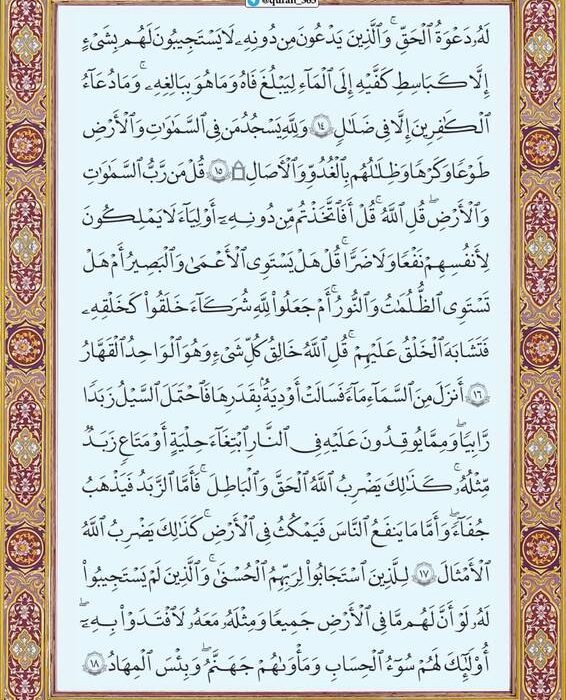 @quran_365
لَهُۥ دَعْوَةُ ٱلْحَقِّ ۚ وَٱلَّذِينَ يَدْعُونَ مِن دُونِهِۦ لَا يَسْتَجِيبُونَ لَهُم بِشَىْءٍ
إِلَّا كَبَٰسِطِ كَفَّيْهِ إِلَى ٱلْمَآءِ لِيَبْلُغَ فَاهُ وَمَا هُوَ بِبَٰلِغِهِۦ ۚ وَمَا دُعَآءُ
ٱلْكَٰفِرِينَ إِلَّا فِى ضَلَٰلٍ ١٤ وَلِلَّهِ يَسْجُدُ مَن فِى ٱلسَّمَٰوَٰتِ وَٱلْأَرْضِ
طَوْعًا وَكَرْهًا وَظِلَٰلُهُم بِٱلْغُدُوِّ وَٱلْءَاصَالِ ۩ ١٥ قُلْ مَن رَّبُّ ٱلسَّمَٰوَٰتِ
وَٱلْأَرْضِ قُلِ ٱللَّهُ ۚ قُلْ أَفَٱتَّخَذْتُم مِّن دُونِهِۦٓ أَوْلِيَآءَ لَا يَمْلِكُونَ
لِأَنفُسِهِمْ نَفْعًا وَلَا ضَرًّا ۚ قُلْ هَلْ يَسْتَوِى ٱلْأَعْمَىٰ وَٱلْبَصِيرُ أَمْ هَلْ
تَسْتَوِى ٱلظُّلُمَٰتُ وَٱلنُّورُ ۗ أَمْ جَعَلُوا۟ لِلَّهِ شُرَكَآءَ خَلَقُوا۟ كَخَلْقِهِۦ
فَتَشَٰبَهَ ٱلْخَلْقُ عَلَيْهِمْ ۚ قُلِ ٱللَّهُ خَٰلِقُ كُلِّ شَىْءٍ وَهُوَ ٱلْوَٰحِدُ ٱلْقَهَّٰرُ
١٦ أَنزَلَ مِنَ ٱلسَّمَآءِ مَآءً فَسَالَتْ أَوْدِيَةٌۢ بِقَدَرِهَا فَٱحْتَمَلَ ٱلسَّيْلُ زَبَدًا
رَّابِيًا ۚ وَمِمَّا يُوقِدُونَ عَلَيْهِ فِى ٱلنَّارِ ٱبْتِغَآءَ حِلْيَةٍ أَوْ مَتَٰعٍ زَبَدٌ
مِّثْلُهُۥ ۚ كَذَٰلِكَ يَضْرِبُ ٱللَّهُ ٱلْحَقَّ وَٱلْبَٰطِلَ ۚ فَأَمَّا ٱلزَّبَدُ فَيَذْهَبُ
جُفَآءً ۖ وَأَمَّا مَا يَنفَعُ ٱلنَّاسَ فَيَمْكُثُ فِى ٱلْأَرْضِ ۚ كَذَٰلِكَ يَضْرِبُ ٱللَّهُ
ٱلْأَمْثَالَ ١٧ لِلَّذِينَ ٱسْتَجَابُوا۟ لِرَبِّهِمُ ٱلْحُسْنَىٰ ۚ وَٱلَّذِينَ لَمْ يَسْتَجِيبُوا۟
لَهُۥ لَوْ أَنَّ لَهُم مَّا فِى ٱلْأَرْضِ جَمِيعًا وَمِثْلَهُۥ مَعَهُۥ لَٱفْتَدَوْا۟ بِهِۦٓ ۚ
أُو۟لَٰٓئِكَ لَهُمْ سُوٓءُ ٱلْحِسَابِ وَمَأْوَىٰهُمْ جَهَنَّمُ ۖ وَبِئْسَ ٱلْمِهَادُ ١٨